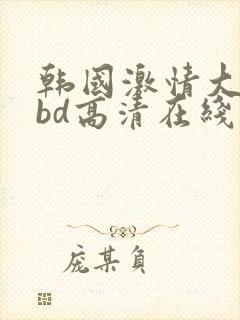 韩国激情大
bd高清在线
庞某负